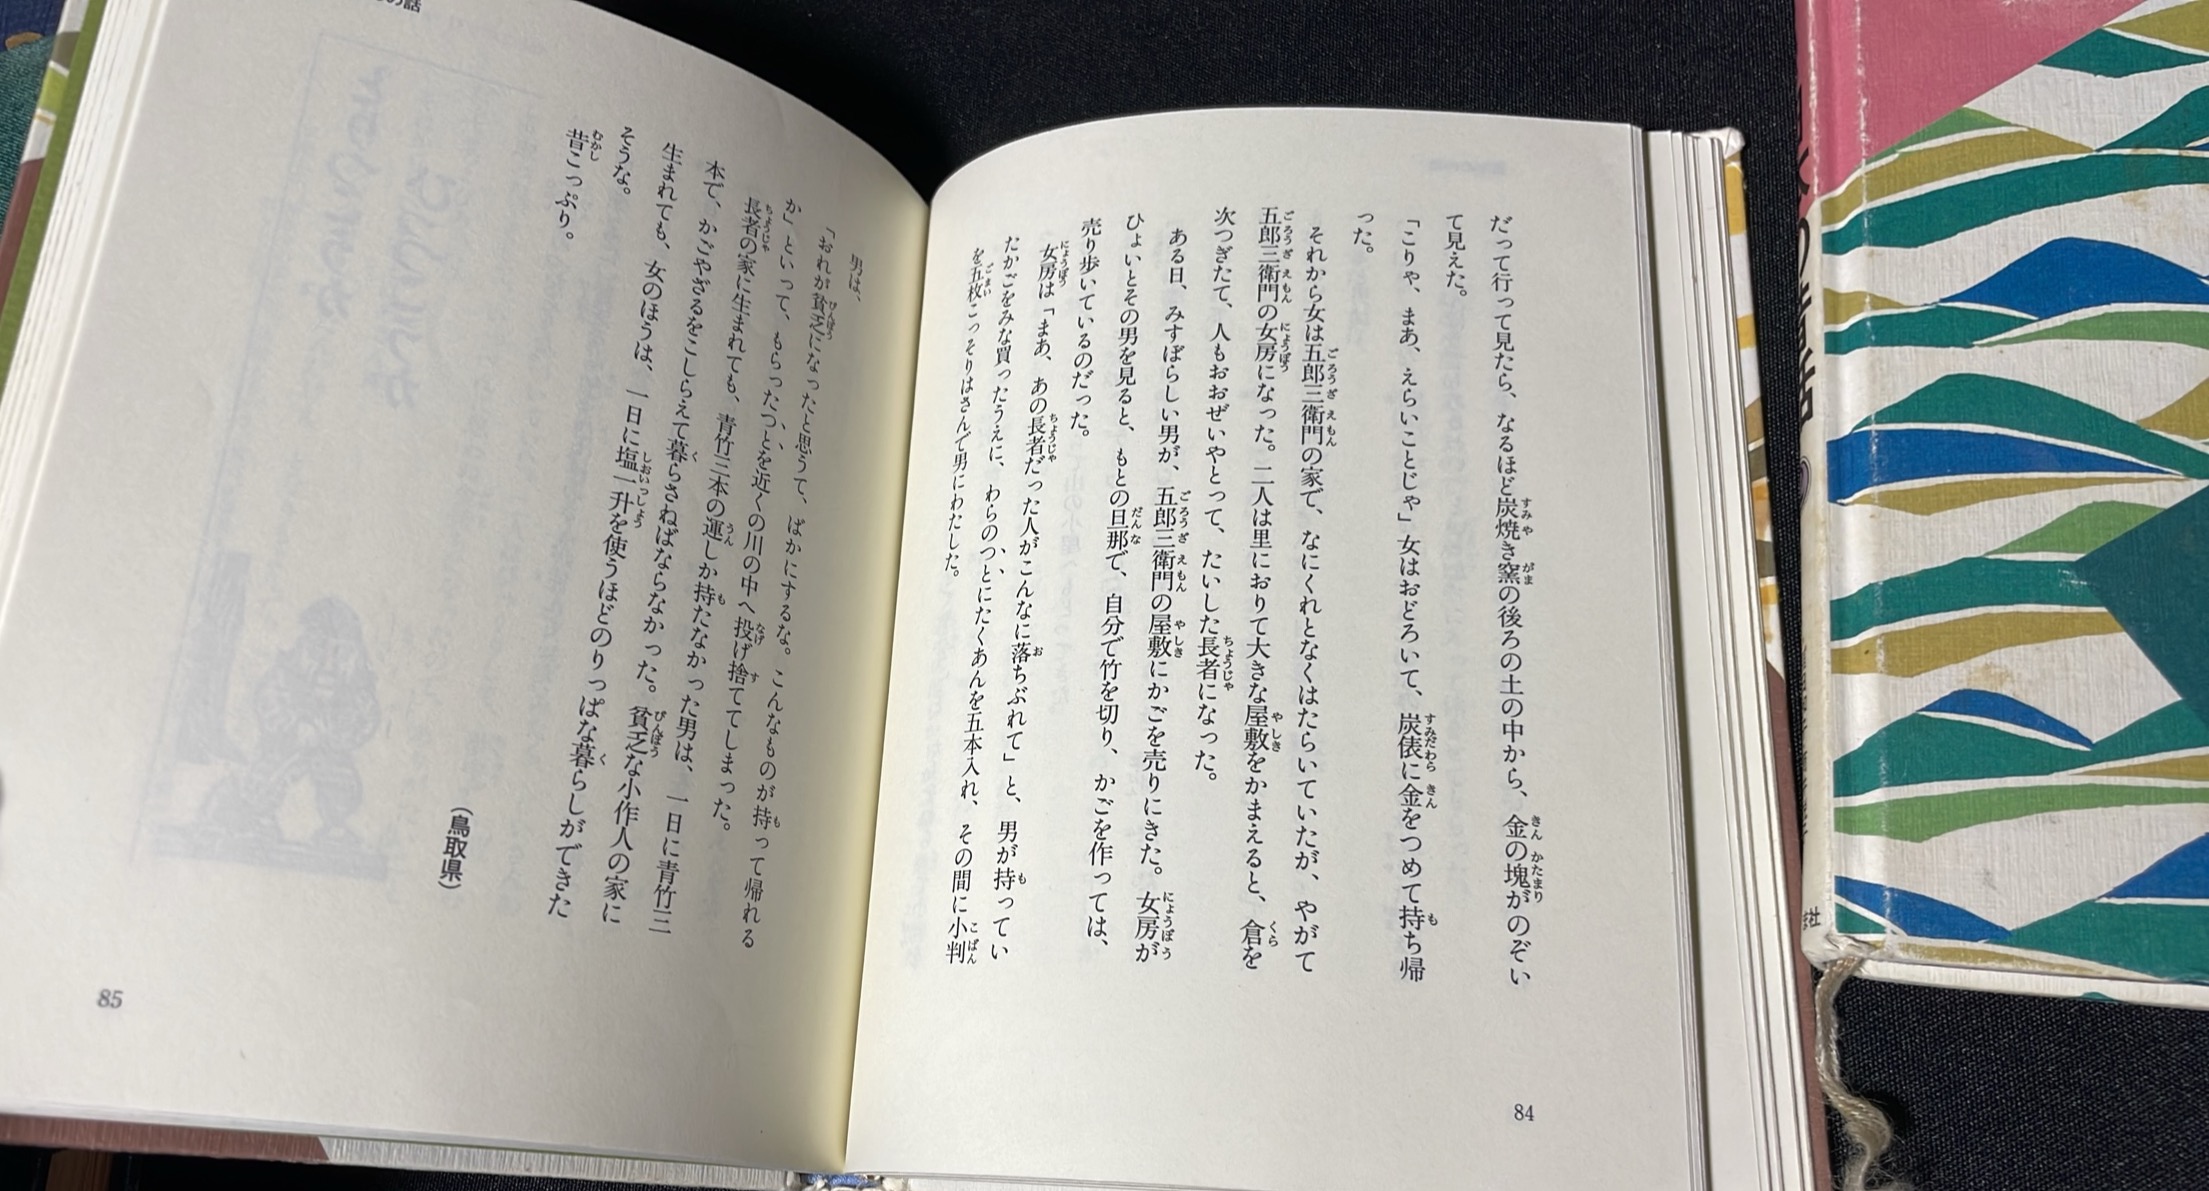 だって行って見たら、なるほど炭焼き窯の後ろの土の中から、金の塊がのぞい
て見えた。
「こりゃ、まあ、えらいことじゃ」女はおどろいて、炭俵に金をつめて持ち帰
った。
それから女は五郎三衛門の家で、なにくれとなくはたらいていたが、やがて
五郎三衛門の女房になった。二人は里におりて大きな屋敷をかまえると、倉を
次つぎたて、人もおおぜいやとって、たいした長者になった。
ある日、みすぼらしい男が、五郎三衛門の屋敷にかごを売りにきた。女房が
ひょいとその男を見ると、もとの旦那で、自分で竹を切り、かごを作っては、
売り歩いているのだった。
女房は「まあ、あの長者だった人がこんなに落ちぶれて」と、男が持ってい
たかごをみな買ったうえに、わらのつとにたくあんを五本入れ、その間に小判
を五枚こっそりはさんで男にわたした。
84
の話
男は、
「おれが貧乏になったと思うて、ばかにするな。こんなものが持って帰れる
か」といって、もらったつとを近くの川の中へ投げ捨ててしまった。
長者の家に生まれても、青竹三本の運しか持たなかった男は、一日に青竹三
本で、かごやざるをこしらえて暮らさねばならなかった。貧乏な小作人の家に
生まれても、女のほうは、一日に塩一升を使うほどのりっぱな暮らしができた
そうな。
昔こっぷり。
（鳥取県）
85